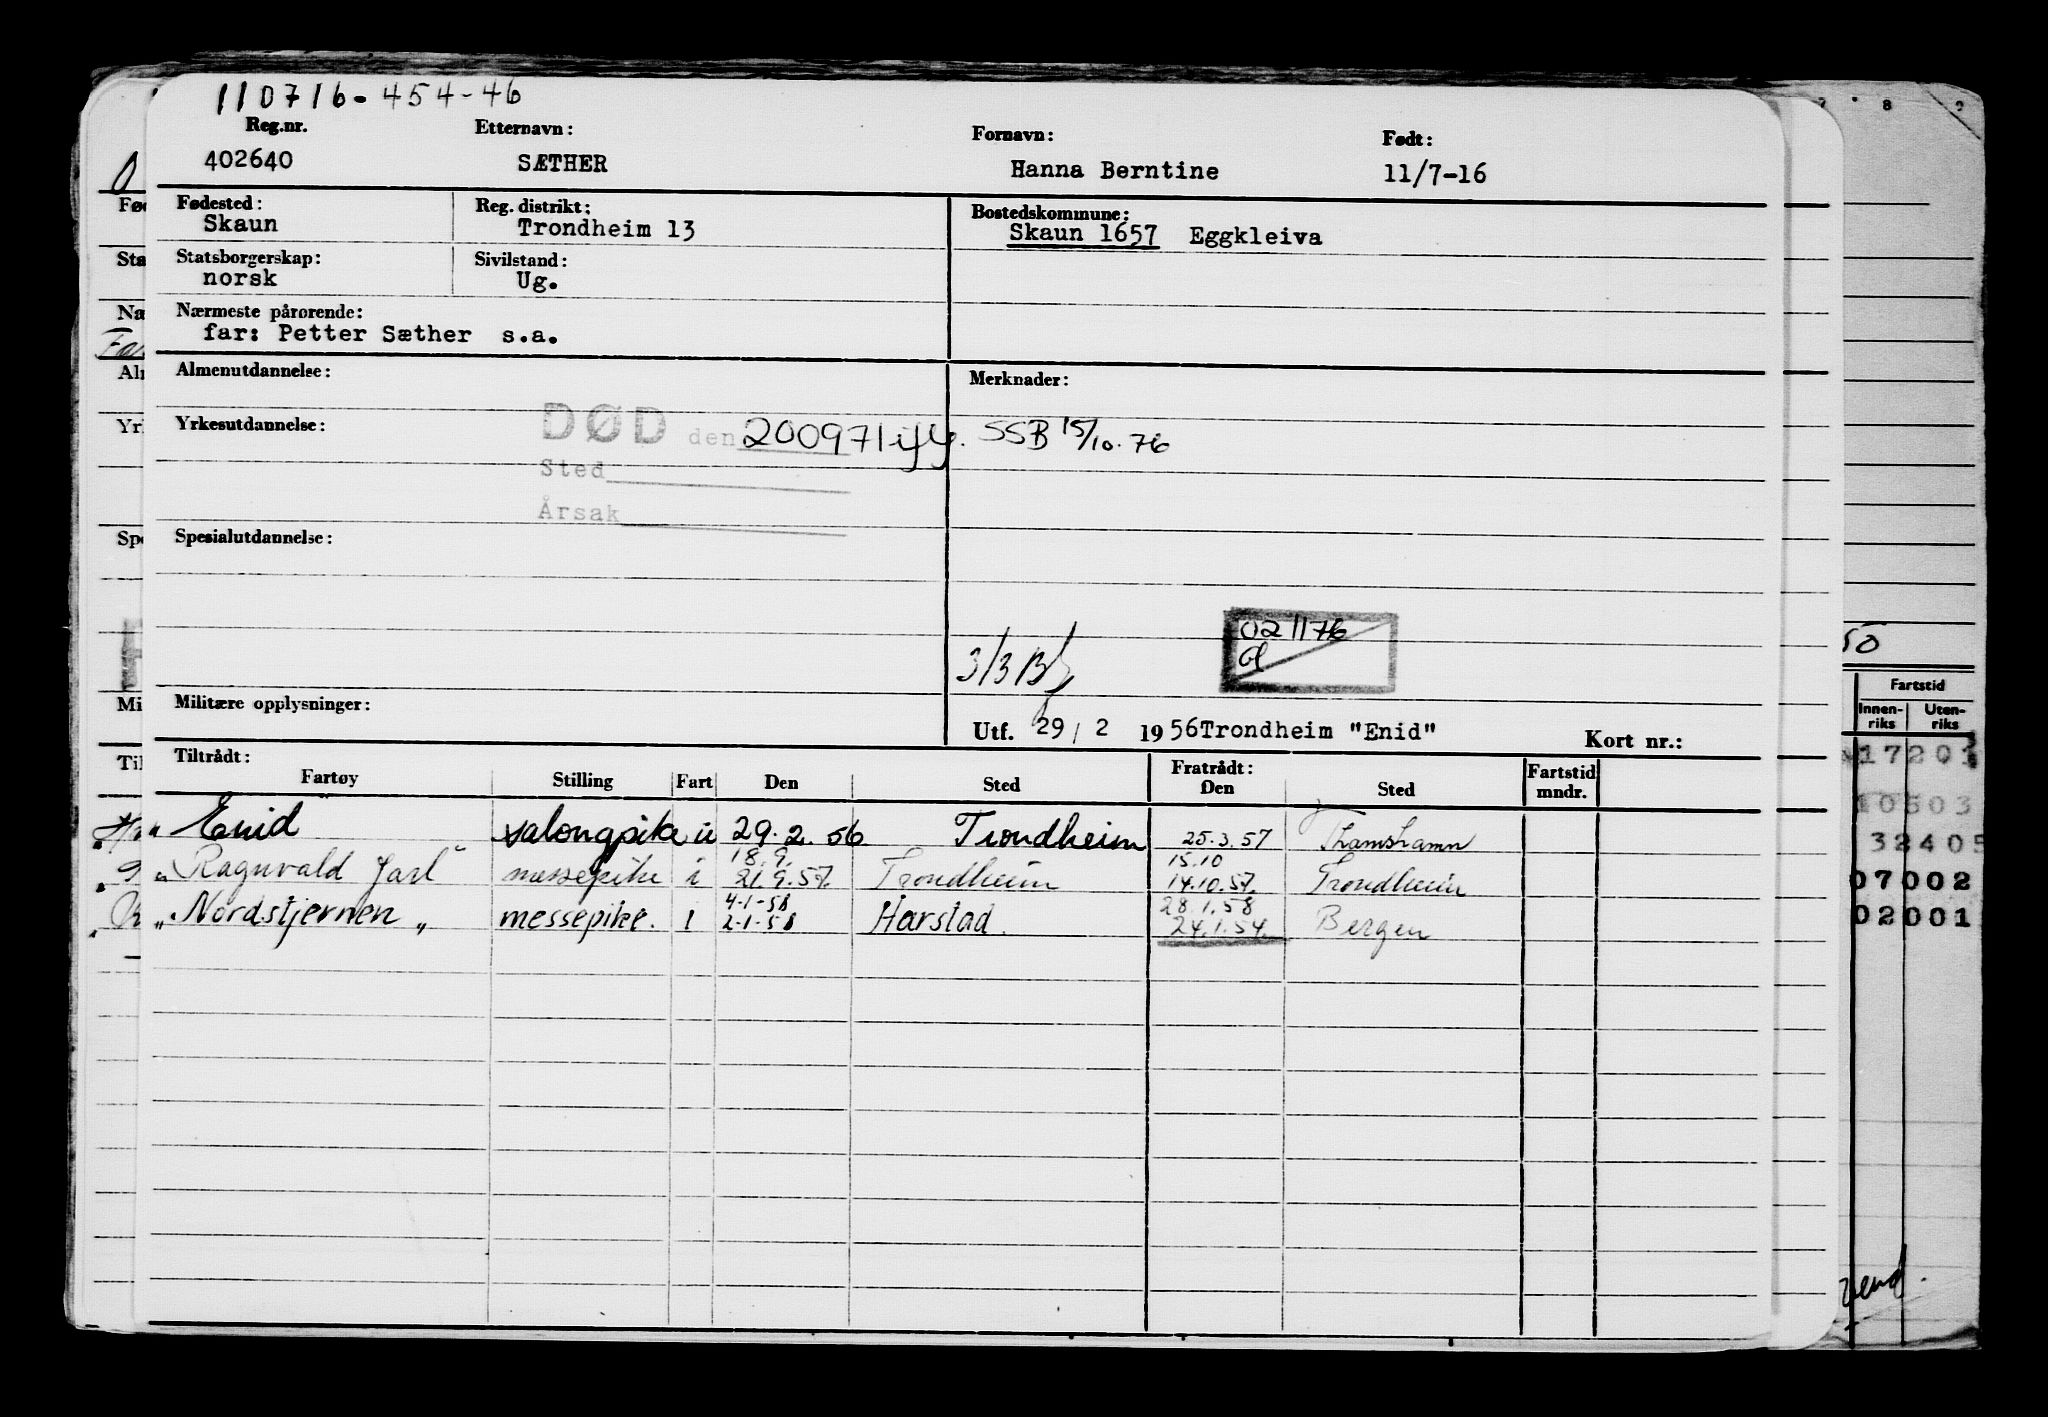 110716-454-46
Reg.nr. Etternavn: Fornavn: Født:
402640 SÆTHER Hanna Berntine 11/7-16
Fødested: Reg. distrikt: Bostedskommune:
Skaun Trondheim 13 Skaun 1657 Eggkleiva
Statsborgerskap: Sivilstand:
norsk Ug.
Nærmeste pårørende:
far: Petter Sæther s.a.
Almenutdannelse: Merknader:
Yrkesutdannelse: DØD den 200971 ifg. SSB 15/10.76
Sted
Årsak
Spesialutdannelse:
021176
3/3
Militære opplysninger:
Utf. 29/2 1956 Trondheim "Enid" Kort nr.:
Tiltrådt: Fratrådt:
Fartøy Stilling Fart Den Sted Den Sted Fartstid mndr.
"Enid" salongpike u 29.2.56 Trondheim 25.3.57 Thamshamn
18.9. 15.10
"Ragnvald Jarl" messepike i 21.9.57. Trondheim 14.10.57. Trondheim
4-1-58 28.1.58
"Nordstjernen" messepike. i 2-1-58 Harstad. 24.1.54. Bergen
8
50
Fartstid
Innenriks Utenriks
17201
10503
32405
07002
02001